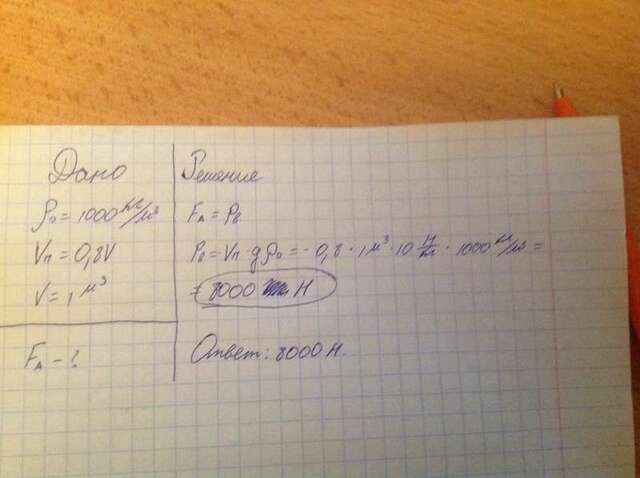 Дано
ρ₀ = 1000 кг/м³
Vп = 0,8V
V = 1 м³
Fд - ?
Решение
Fд = Pв
Pв = Vп · gρ₀ = 0,8 · 1 м³ · 10 Н/кг · 1000 кг/м³ =
= 8000 Н
Ответ: 8000 Н.